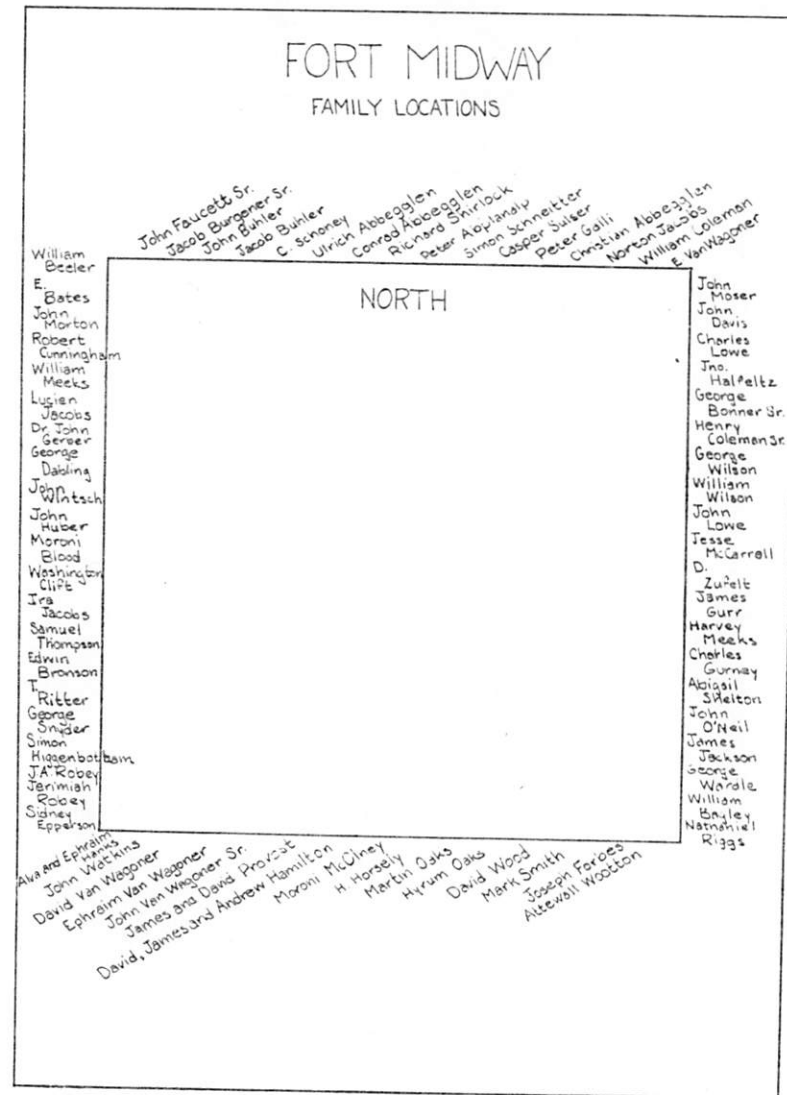 FORT MIDWAY
FAMILY LOCATIONS
John Faucett Sr.
Jacob Burgener Sr.
John Buhler
Jacob Buhler
C. Schoney
Ulrich Abbegglen
Conrad Abbegglen
Richard Shirlock
Peter Abplanalp
Simon Schneitter
Casper Sulser
Peter Galli
Christian Abbegglen
Norton Jacobs
William Coleman
E. Van Wagoner
NORTH
William
Beeler
E.
Bates
John
Morton
Robert
Cunningham
William
Meeks
Lucien
Jacobs
Dr. John
Gerber
George
Dabling
John
Wintsch
John
Huber
Moroni
Blood
Washington
Clift
Ira
Jacobs
Samuel
Thompson
Edwin
Bronson
T.
Ritter
George
Snyder
Simon
Higgenbotham
J.A. Robey
Jerimiah
Robey
Sidney
Epperson
John
Moser
John
Davis
Charles
Lowe
Jno.
Halfeltz
George
Bonner Sr.
Henry
Coleman Sr.
George
Wilson
William
Wilson
John
Lowe
Jesse
McCarrall
D.
Zufelt
James
Gurr
Harvey
Meeks
Charles
Gurney
Abigail
Shelton
John
O'Neil
James
Jackson
George
Wardle
William
Bayley
Nathaniel
Riggs
Alva and Ephraim
Hanks
John Watkins
David Van Wagoner
Ephraim Van Wagoner
John Van Wagoner Sr.
James and David Provost
David, James and Andrew Hamilton
Moroni McOlney
H. Horsely
Martin Oaks
Hyrum Oaks
David Wood
Mark Smith
Joseph Forbes
Attewall Wootton